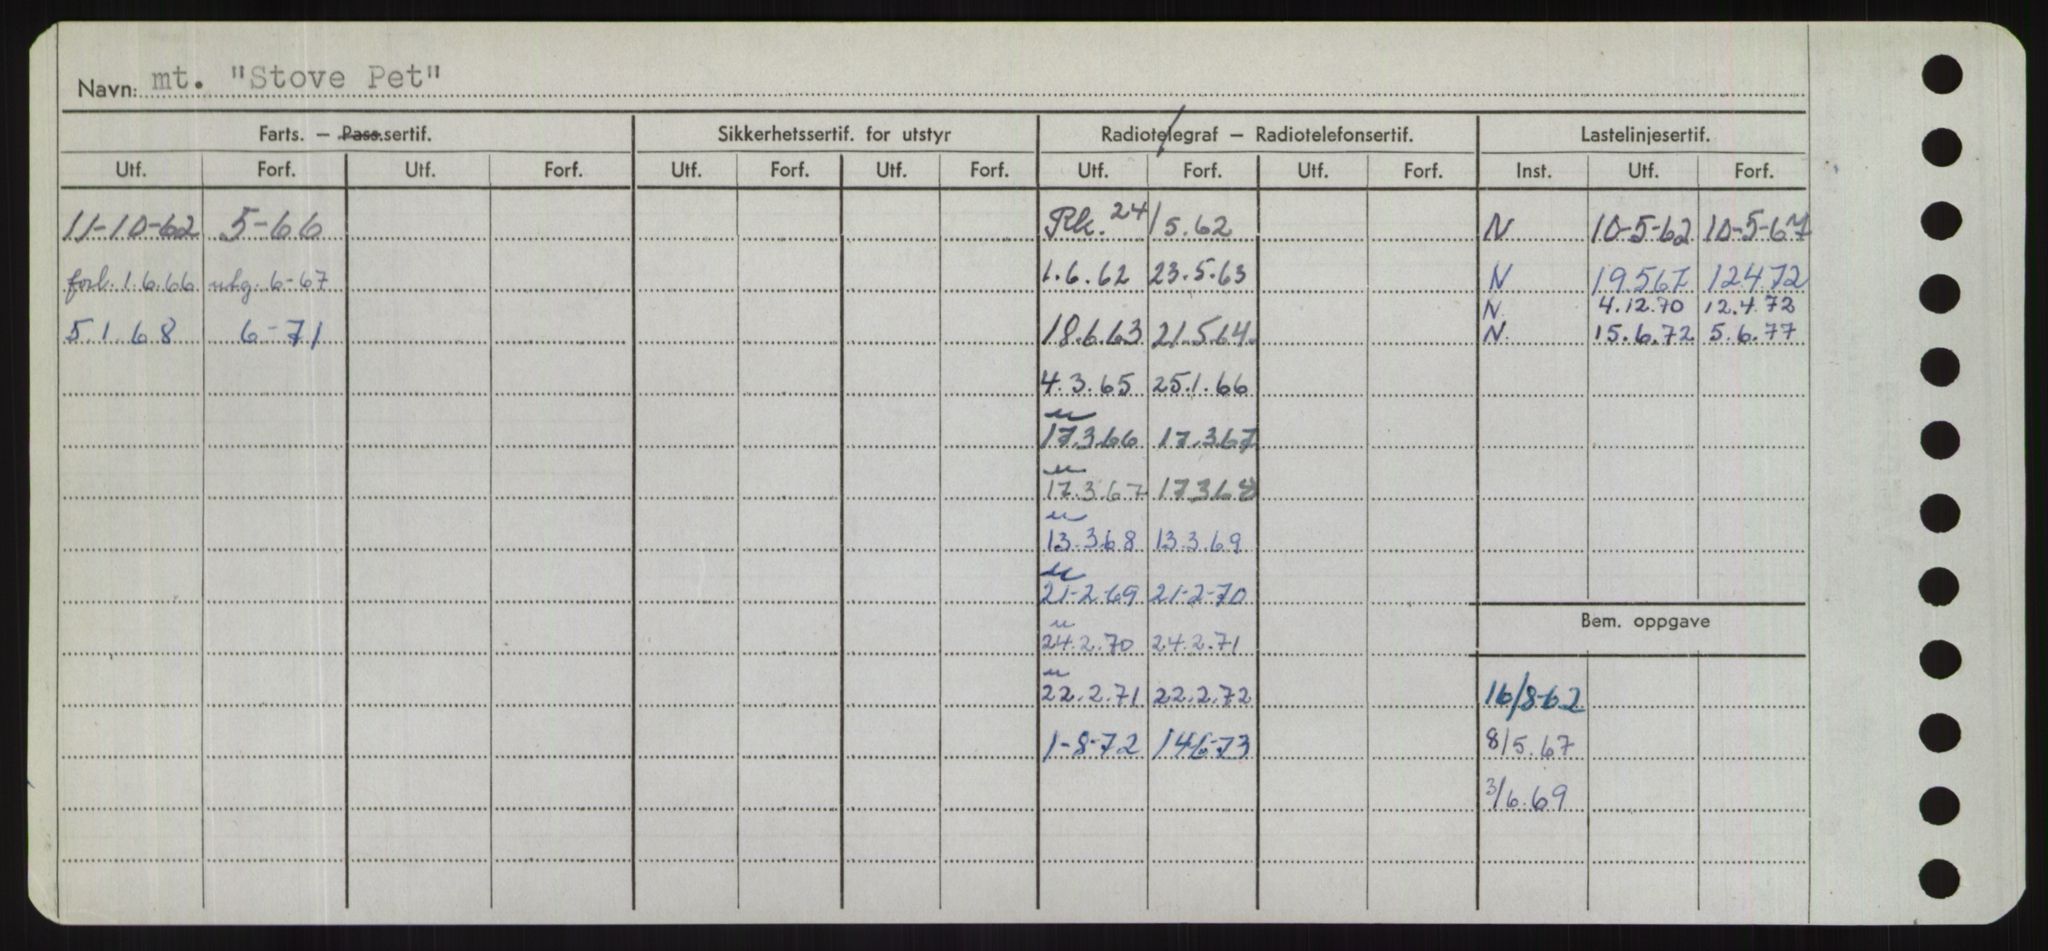 Navn: mt. "Stove Pet"
Farts. — Pass.sertif. Sikkerhetssertif. for utstyr Radiotelegraf — Radiotelefonsertif. Lastelinjesertif.
Utf. Forf. Utf. Forf. Utf. Forf. Utf. Forf. Utf. Forf. Utf. Forf. Inst. Utf. Forf.
11-10-62 5-66 Rk. 24/5.62 N 10-5-62 10-5-67
forl. 1.6.66 utg. 6-67 1.6.62 23.5.63 N 19.567 12472
N. 4.12.70 12.4.72
5.1.68 6-71 18.6.63 21.5.64. N. 15.6.72 5.6.77
4.3.65 25.1.66
u
17.3.66 17.3.67
u
17.3.67 17368
u
13.3.68 13.3.69
u
21-2-69 21-2-70
Bem. oppgave
u
24.2.70 24.2.71
u
22.2.71 22.2.72 16/8-62
1-8-72 14673 8/5.67
3/6.69